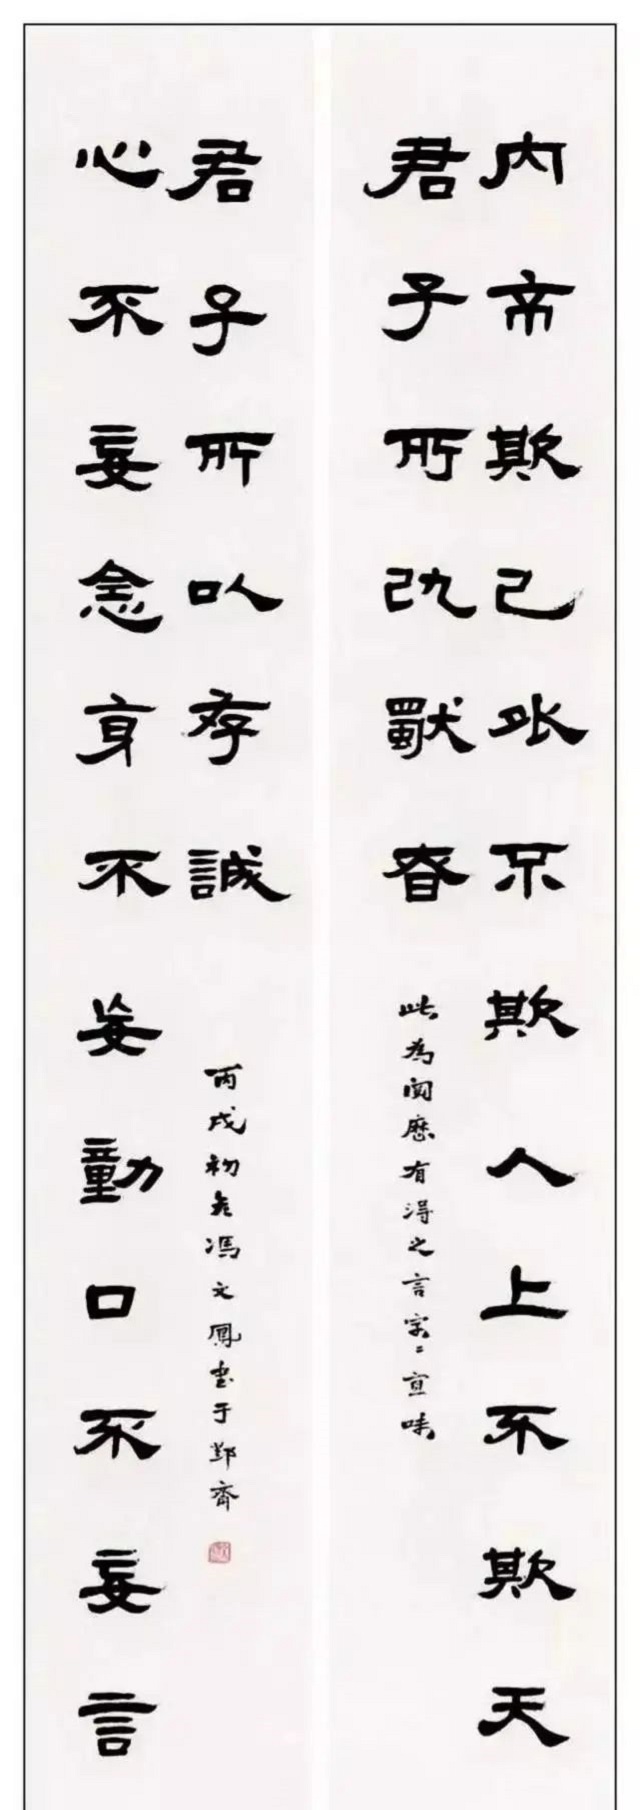 内不欺己外不欺人上不欺天
君子所以獨昚
此為閱歷有得之言字〻宜味
心不妄念身不妄動口不妄言
君子所以存誠
丙戌初冬馮文鳳書于齋